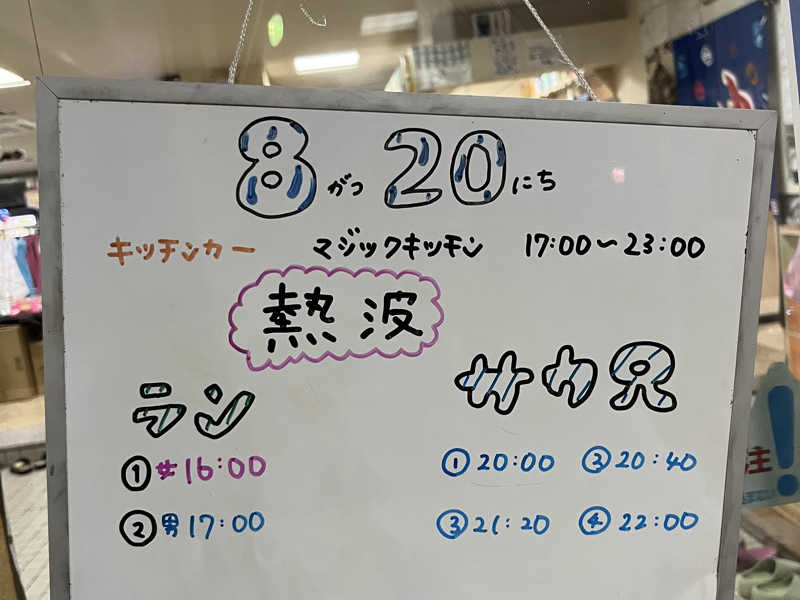 8がつ 20にち
キッチンカー マジックキッチン 17:00～23:00
熱波
ラン
サカ兄
①女16:00
②男17:00
①20:00 ②20:40
③21:20 ④22:00
注!